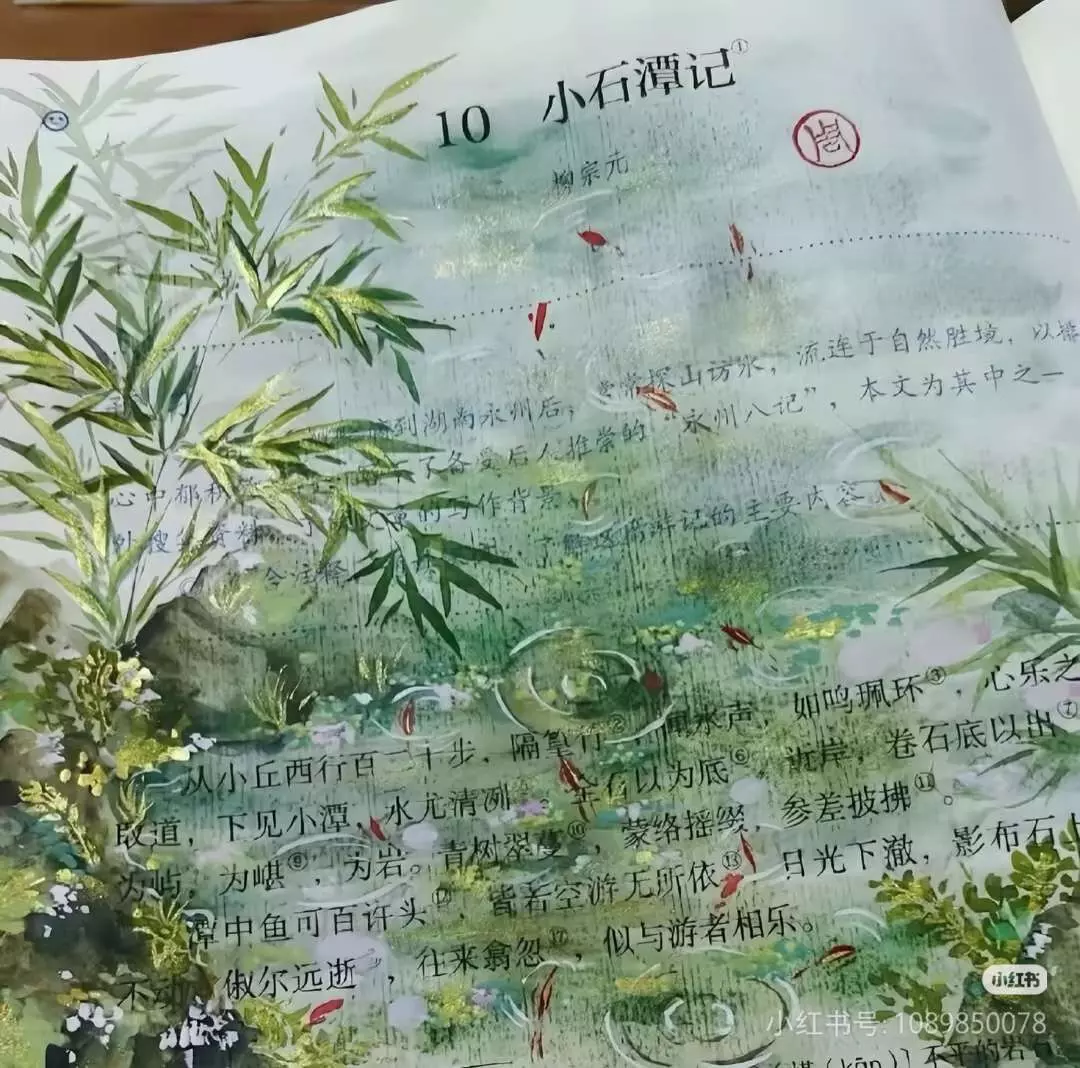 10 小石潭记①
柳宗元
到湖南永州后，常常探山访水，流连于自然胜境，以排
心中郁积 了备受后人推崇的“永州八记”，本文为其中之一
外搜集资料 的写作背景 了解这篇游记的主要内容。
合注释
从小丘西行百二十步，隔篁竹②，闻水声，如鸣珮环③，心乐之
取道，下见小潭，水尤清冽 全石以为底⑥，近岸，卷石底以出⑦
为屿，为嵁⑧，为岩。青树翠蔓⑩，蒙络摇缀，参差披拂⑪。
潭中鱼可百许头⑫，皆若空游无所依⑬，日光下澈，影布石上
不动，俶尔远逝，往来翕忽⑰，似与游者相乐。
嵁（kān）〕不平的岩石
小红书
小红书号: 1089850078